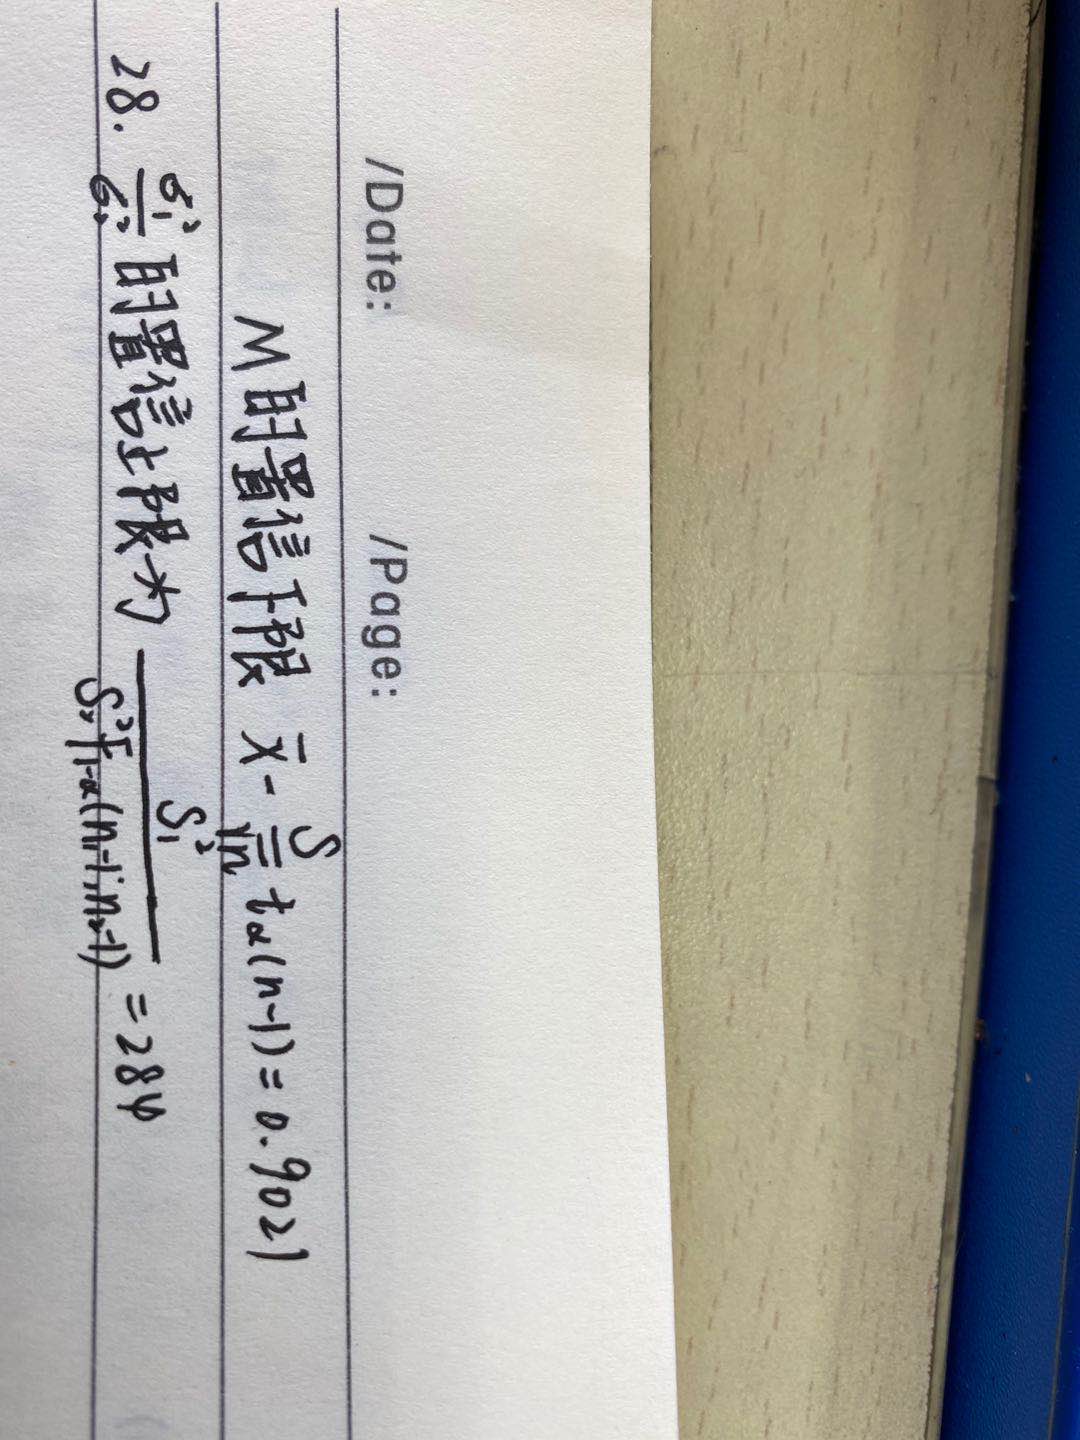 /Date: /Page:
M的置信下限 x̄ - S/√n tα(n-1) = 0.9021
28. σ₁²/σ₂² 的置信上限为 S₁²/S₂²F₁₋α(n₁-1, n₂-1) = 2.84